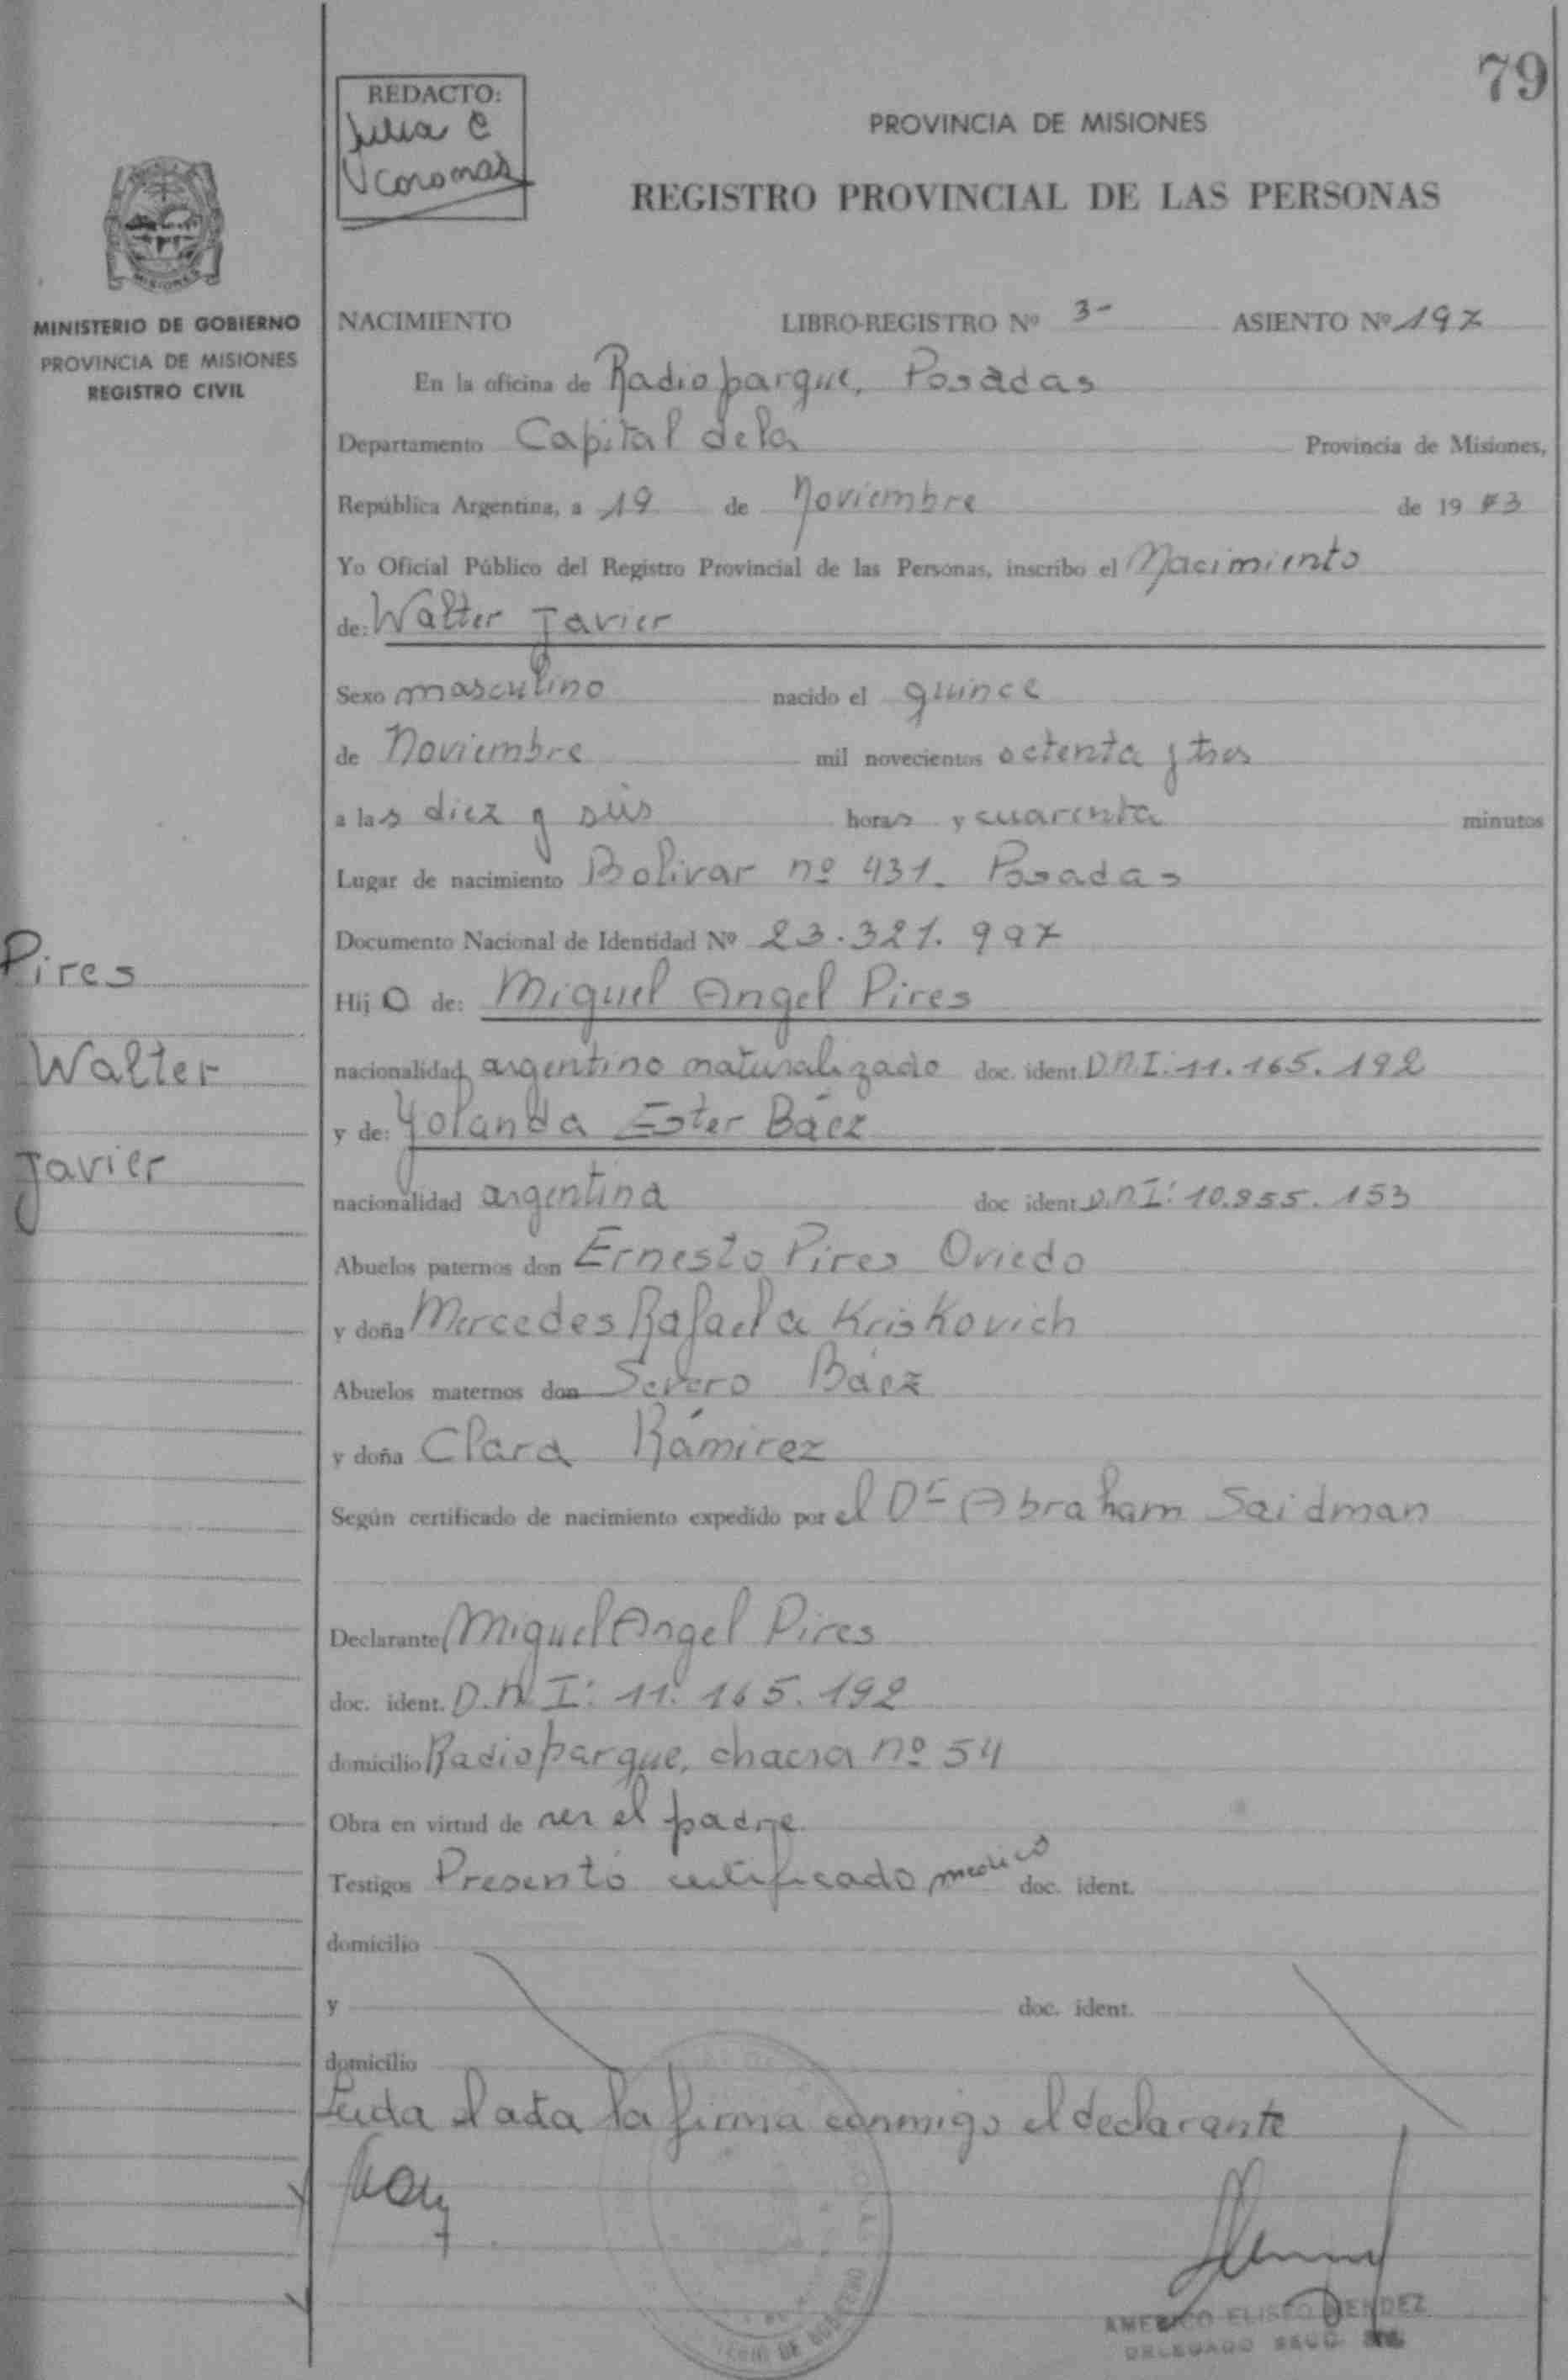 79
REDACTO:
Julia C
Coromas
PROVINCIA DE MISIONES
REGISTRO PROVINCIAL DE LAS PERSONAS
MISIONES
MINISTERIO DE GOBIERNO
PROVINCIA DE MISIONES
REGISTRO CIVIL
NACIMIENTO LIBRO-REGISTRO Nº 3- ASIENTO Nº 197
En la oficina de Radioparque, Posadas
Departamento Capital de la Provincia de Misiones,
República Argentina, a 19 de Noviembre de 1973
Yo Oficial Público del Registro Provincial de las Personas, inscribo el Nacimiento
de: Walter Javier
Sexo masculino nacido el quince
de Noviembre mil novecientos setenta y tres
a las diez y seis horas y cuarenta minutos
Lugar de nacimiento Bolivar nº 431. Posadas
Documento Nacional de Identidad Nº 23.321.997
Pires
Walter
Javier
Hijo de: Miguel Angel Pires
nacionalidad argentino naturalizado doc. ident. D.N.I: 11.165.192
y de: Yolanda Ester Báez
nacionalidad argentina doc ident D.N.I: 10.955.153
Abuelos paternos don Ernesto Pires Oviedo
y doña Mercedes Rafaela Kriskovich
Abuelos maternos don Severo Báez
y doña Clara Rámirez
Según certificado de nacimiento expedido por el Dr Abraham Saidman
Declarante Miguel Angel Pires
doc. ident. D.N.I: 11.165.192
domicilio Radioparque, chacra nº 54
Obra en virtud de ser el padre
Testigos Presentó certificado medico doc. ident.
domicilio
y doc. ident.
domicilio
Leida el acta la firma conmigo el declarante
AMERICO ELISEO MENDEZ
DELEGADO SECC.